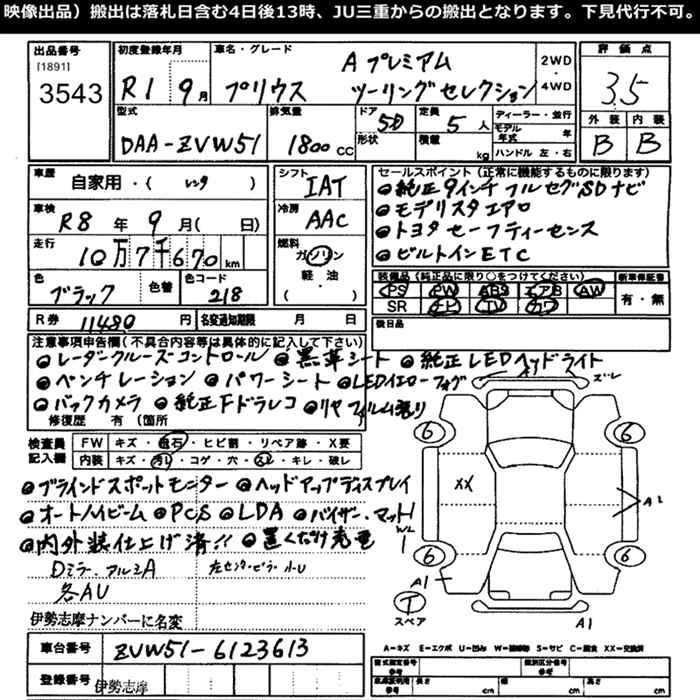 映像出品）搬出は落札日含む4日後13時、JU三重からの搬出となります。下見代行不可。
出品番号
[1891]
3543
初度登録年月
R1 9月
車名・グレード
プリウス
Aプレミアム
ツーリングセレクション
2WD
・
4WD
評価点
3.5
外装 内装
B B
型式
DAA-ZVW51
排気量
1800cc
ドア
5D
形状
定員
5人
積載
kg
ディーラー・並行
モデル年式 年
ハンドル 左・右
車歴
自家用・( レンタ )
車検
R8年9月( 日)
走行
10万7千670km
色
ブラック
色替
色コード
218
シフト
IAT
冷房
AAC
燃料
ガソリン
軽・油
( )
セールスポイント（正常に機能するものに限ります）
●純正9インチフルセグSDナビ
●モデリスタエアロ
●トヨタセーフティーセンス
●ビルトインETC
装備品（純正品に限り○をつけてください）
PS PW ABS エアB AW
SR ナビ TV カワ
新車保証書
有・無
後日品
R券 11480円
名変通知期限 月 日
注意事項申告欄（不具合内容等は具体的に記入して下さい）
●レーダークルーズコントロール ●黒革シート ●純正LEDヘッドライト
●ベンチレーション ●パワーシート ●LEDイエローフォグ
●バックカメラ ●純正Fドラレコ ●リヤフィルム張り
修復歴 有（箇所
検査員記入欄
FW キズ・飛石・ヒビ割・リペア跡・X要
内装 キズ・汚れ・コゲ・穴・スレ・キレ・破レ
●ブラインドスポットモニター ●ヘッドアップディスプレイ
●オートハイビーム ●PCS ●LDA ●バイザー、マット!
●内外装仕上げ済!! ●置くだけ充電
Dミラー、アルミA 左センターピラー小U
各AU
伊勢志摩ナンバーに名変
車台番号
ZVW51-6123613
登録番号
伊勢志摩
ズレ
6 6
XX
A2
W2
6 6
A1
T
スペア
A1
A=キズ E=エクボ U=凹み W=補修跡 S=サビ C=腐食 XX=交換済
型式指定番号
参考
類別区分番号
参考
車庫証明用
参考
長さ cm
幅 cm
高さ cm